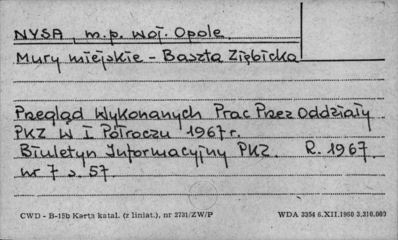 NYSA, m.p. woj. Opole.
Mury miejskie - Baszta Ziębicka
Przegląd Wykonanych Prac Przez Oddziały
PKZ W I Półroczu 1967 r.
Biuletyn Informacyjny PKZ. R. 1967.
nr 7 s. 57.
CWD - B-15b Karta katal. (z liniat.), nr 2731/ZW/P WDA 3354 6.XII.1960 3.310.000